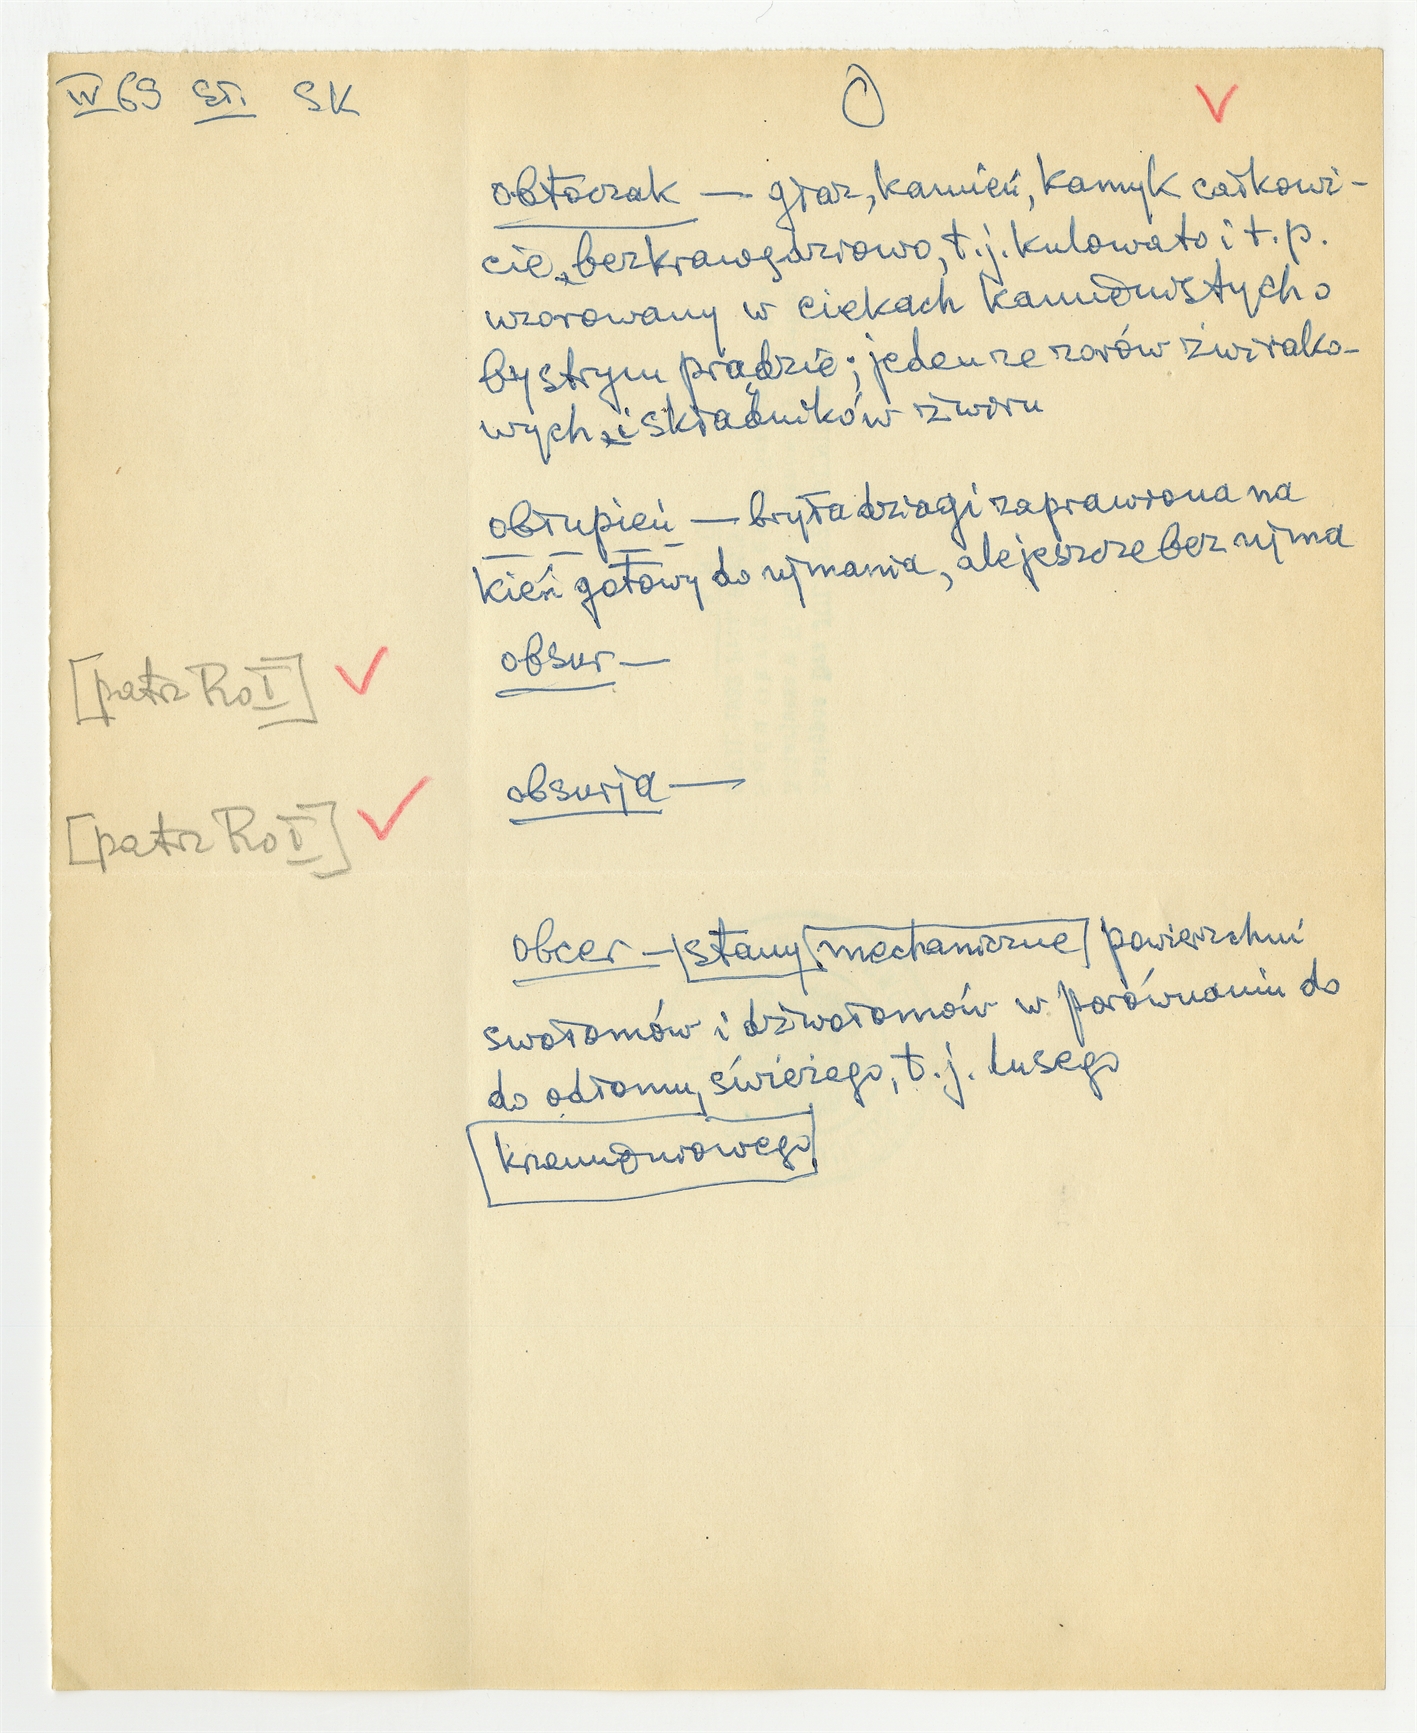 IV 69 st. SK O
obtoczak — głaz, kamień, kamyk całkowi-
cie, bezkrawędziowo, t.j. kulowato i t.p.
wzorowany w ciekach kamienistych o
bystrym prądzie; jeden ze zorów żwirako-
wych i składników żwiru
obłupień — bryła dziagi zaprawiona na
kień gotowy do ujmania, ale jeszcze bez ujma
[patrz Ro I] obsur —
obsurja —
[patrz Ro I]
obcer — stany mechaniczne powierzchni
swołomów i dziwołomów w porównaniu do
do odłomu, świeżego, t.j. łusego
krzemieniowego